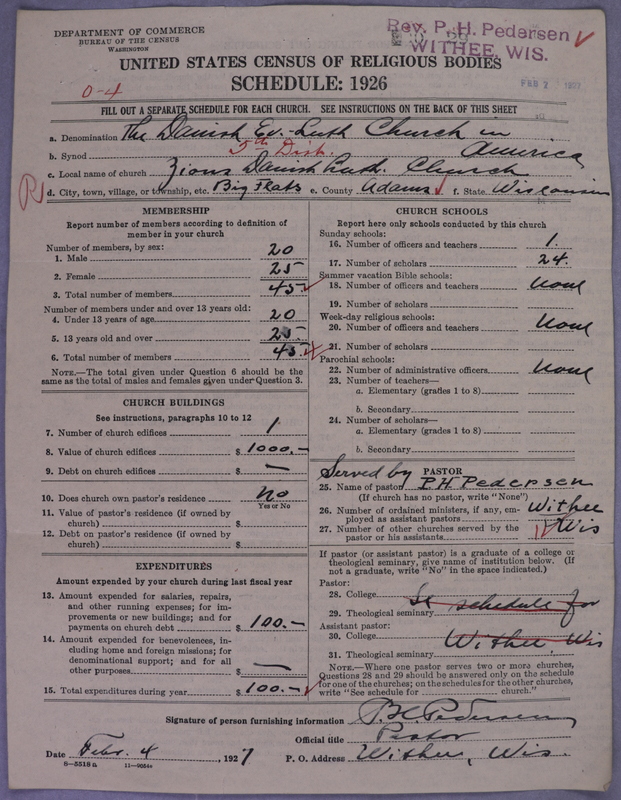 DEPARTMENT OF COMMERCE
BUREAU OF THE CENSUS
WASHINGTON
Rev. P. H. Pedersen
WITHEE, WIS.
UNITED STATES CENSUS OF RELIGIOUS BODIES
SCHEDULE: 1926
0-4
FEB 7 1927
FILL OUT A SEPARATE SCHEDULE FOR EACH CHURCH. SEE INSTRUCTIONS ON THE BACK OF THIS SHEET
a. Denomination The Danish Ev.-Luth Church in
America
b. Synod 5th Dist.
c. Local name of church Zions Danish Luth. Church
R
d. City, town, village, or township, etc. Big Flats e. County Adams f. State Wisconsin
MEMBERSHIP
Report number of members according to definition of
member in your church
Number of members, by sex:
1. Male 20
2. Female 25
3. Total number of members 45
Number of members under and over 13 years old:
4. Under 13 years of age 20
5. 13 years old and over 25
6. Total number of members 45
NOTE.—The total given under Question 6 should be
same as the total of males and females given under Question 3.
CHURCH BUILDINGS
See instructions, paragraphs 10 to 12
7. Number of church edifices 1
8. Value of church edifices $ 1000.—
9. Debt on church edifices $ —
10. Does church own pastor's residence no
Yes or No
11. Value of pastor's residence (if owned by
church) $
12. Debt on pastor's residence (if owned by
church) $
EXPENDITURES
Amount expended by your church during last fiscal year
13. Amount expended for salaries, repairs,
and other running expenses; for im-
provements or new buildings; and for
payments on church debt $ 100.—
14. Amount expended for benevolences, in-
cluding home and foreign missions; for
denominational support; and for all
other purposes $ —
15. Total expenditures during year $ 100.—
CHURCH SCHOOLS
Report here only schools conducted by this church
Sunday schools:
16. Number of officers and teachers 1.
17. Number of scholars 24.
Summer vacation Bible schools:
18. Number of officers and teachers none
19. Number of scholars
Week-day religious schools:
20. Number of officers and teachers none
21. Number of scholars
Parochial schools:
22. Number of administrative officers none
23. Number of teachers—
a. Elementary (grades 1 to 8)
b. Secondary
24. Number of scholars—
a. Elementary (grades 1 to 8)
b. Secondary
Served by PASTOR
25. Name of pastor P.H. Pedersen
(If church has no pastor, write "None")
26. Number of ordained ministers, if any, em-
ployed as assistant pastors Withee
27. Number of other churches served by the
pastor or his assistants Wis
If pastor (or assistant pastor) is a graduate of a college or
theological seminary, give name of institution below. (If
not a graduate, write "No" in the space indicated.)
Pastor:
28. College
29. Theological seminary schedule for
Assistant pastor:
30. College Withee Wis
31. Theological seminary
NOTE.—Where one pastor serves two or more churches,
Questions 28 and 29 should be answered only on the schedule
for one of the churches; on the schedules for the other churches,
write "See schedule for church."
Signature of person furnishing information P.H. Pedersen
Official title Pastor
Date Febr. 4, 1927 P. O. Address Withee, Wis.
8—5518 a